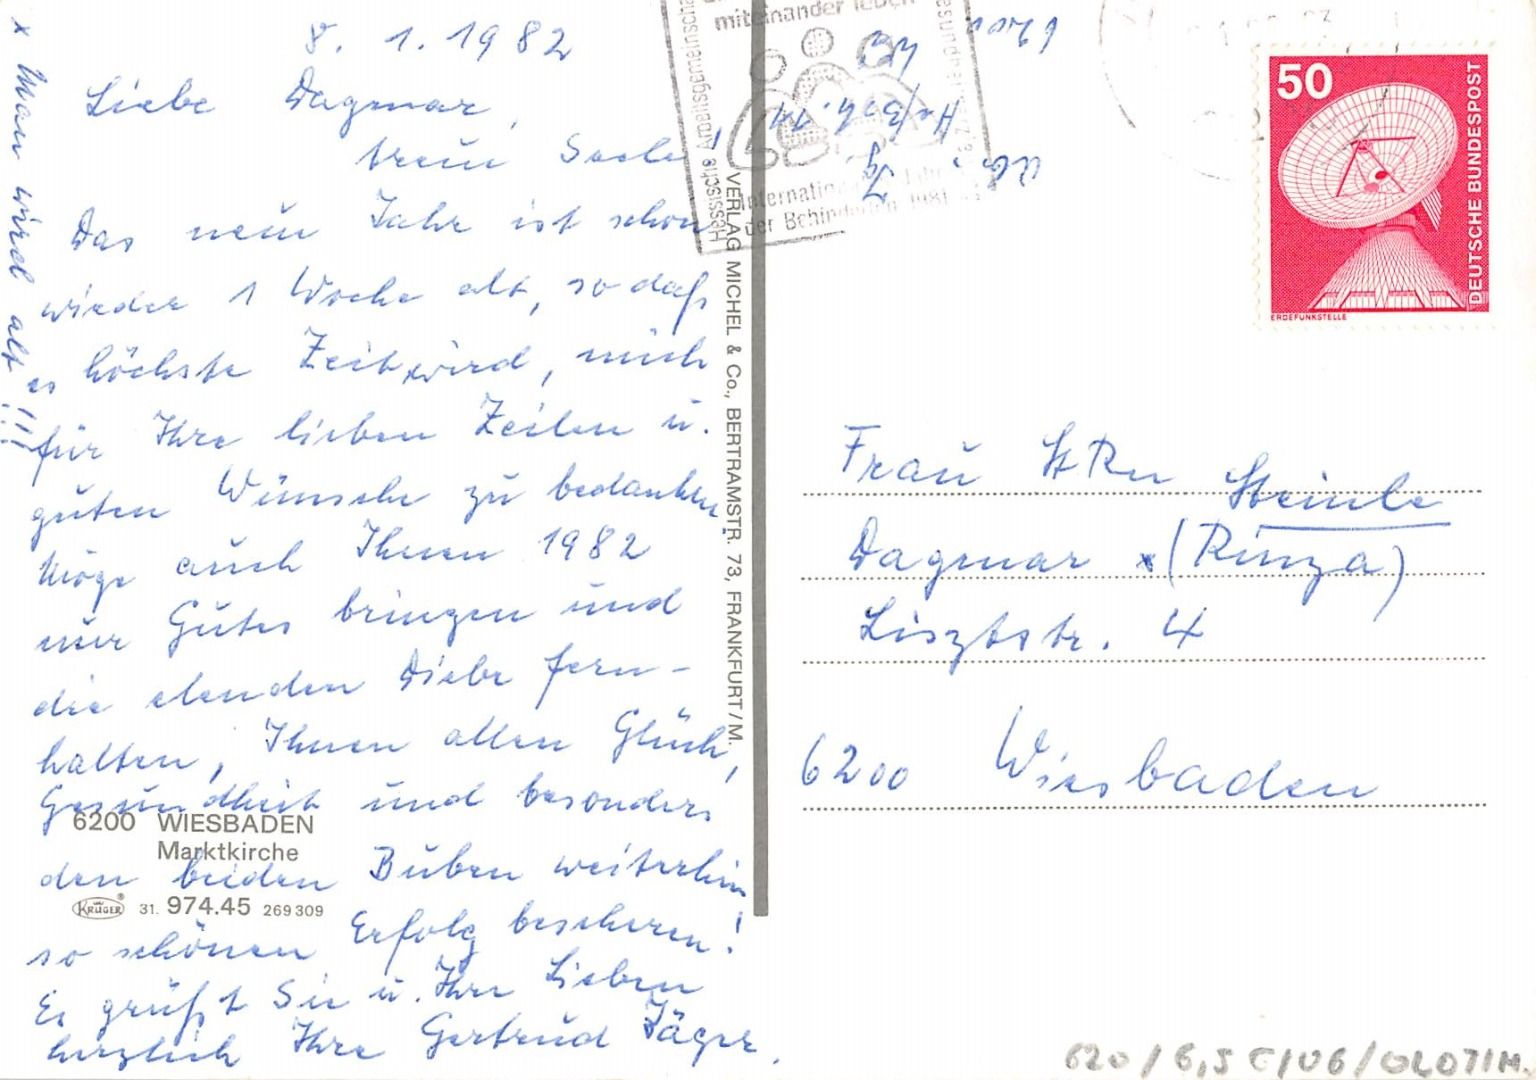 8. 1. 1982
Liebe Dagmar,
treue Seele!
Das neue Jahr ist schon
wieder 1 Woche alt, so daß
es höchste Zeit x wird, mich
für Ihre lieben Zeilen u.
guten Wünsche zu bedanken.
Möge auch Ihnen 1982
nur Gutes bringen und
die elenden Diebe fern-
halten, Ihnen allen Glück,
Gesundheit und besonders
den beiden Buben weiterhin
so schönen Erfolg bescheren!
Es grüßt Sie u. Ihre Lieben
herzlich Ihre Gertrud Jäger.
x Man wird alt!!!
6200 WIESBADEN
Marktkirche
KRÜGER® 31. 974.45 269 309
VERLAG MICHEL & Co., BERTRAMSTR. 73, FRANKFURT/M.
miteinander leben
Internationales Jahr
der Behinderten 1981
Hessische Arbeitsgemeinschaft
Abs. Jg.
6200 Wb
50
DEUTSCHE BUNDESPOST
ERDEFUNKSTELLE
Frau StRn Steinle
Dagmar x (Rinza)
Lisztstr. 4
6200 Wiesbaden
620/6,5 C/U6/OLO71M.